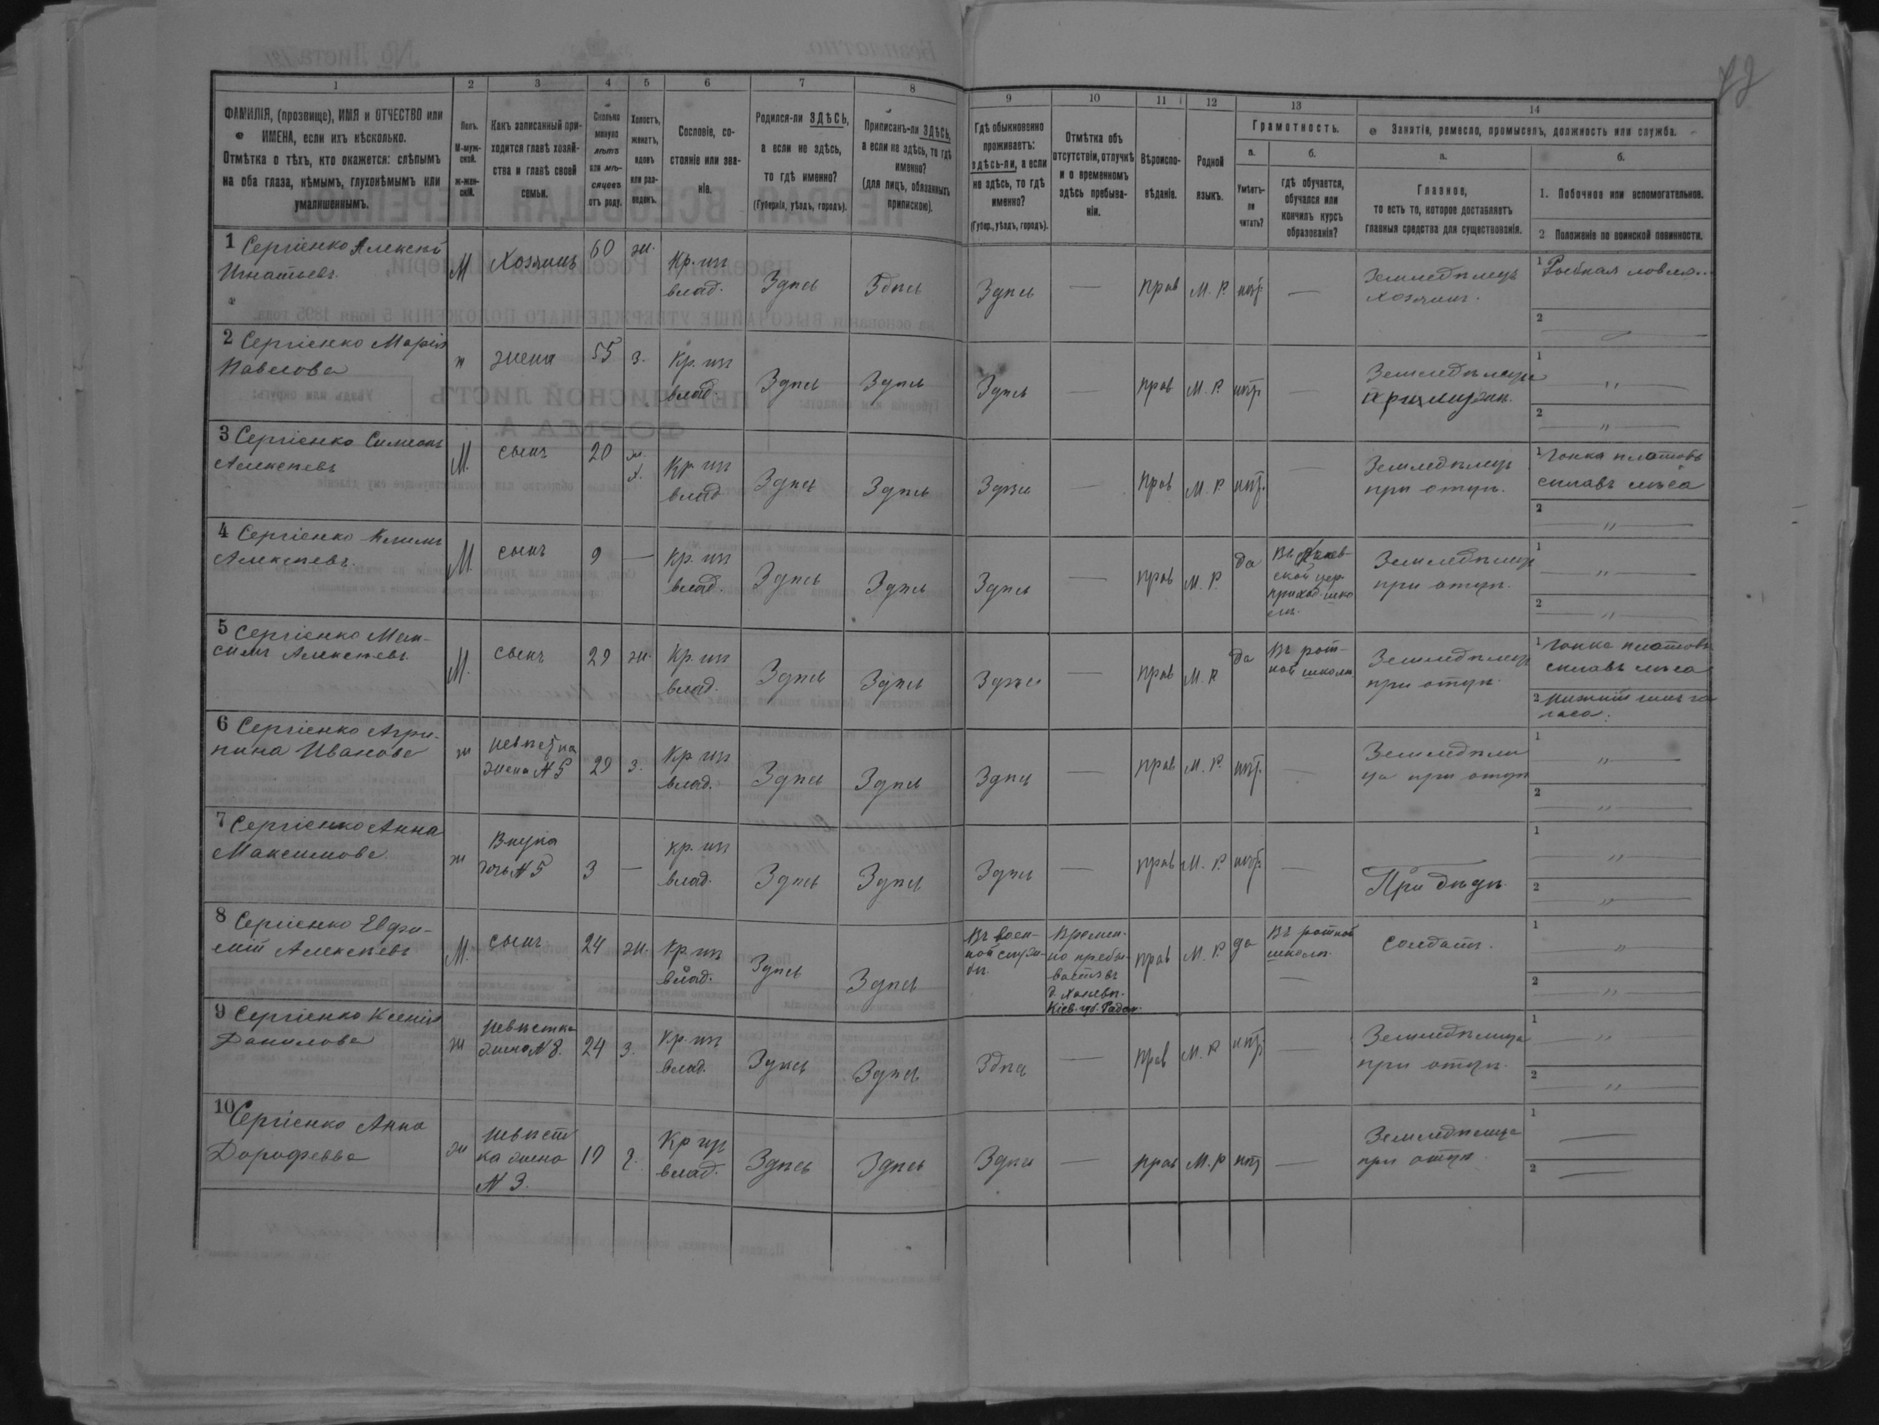 1
2
3
4
5
6
7
8
ФАМИЛІЯ, (прозвище), ИМЯ и ОТЧЕСТВО или
ИМЕНА, если ихъ нѣсколько.
Отмѣтка о тѣхъ, кто окажется: слѣпымъ
на оба глаза, нѣмымъ, глухонѣмымъ или
умалишеннымъ.
Полъ.
М-муж-
ской.
ж-жен-
скій.
Какъ записанный при-
ходится главѣ хозяй-
ства и главѣ своей
семьи.
Сколько
минуло
лѣтъ
или мѣ-
сяцевъ
отъ роду.
Холостъ,
женатъ,
вдовъ
или раз-
веденъ.
Сословіе, со-
стояніе или зва-
ніе.
Родился-ли ЗДѢСЬ,
а если не здѣсь,
то гдѣ именно?
(Губернія, уѣздъ, городъ).
Приписанъ-ли ЗДѢСЬ,
а если не здѣсь, то гдѣ
именно?
(для лицъ, обязанныхъ
припискою).
9
10
11
12
13
14
Гдѣ обыкновенно
проживаетъ:
здѣсь-ли, а если
не здѣсь, то гдѣ
именно?
(Губер., уѣздъ, городъ).
Отмѣтка объ
отсутствіи, отлучкѣ
и о временномъ
здѣсь пребыва-
ніи.
Вѣроиспо-
вѣданіе.
Родной
языкъ.
Грамотность.
а.
б.
Умѣетъ-
ли
читать?
гдѣ обучается,
обучался или
кончилъ курсъ
образованія?
Занятія, ремесло, промыселъ, должность или служба.
а.
б.
Главное,
то есть то, которое доставляетъ
главныя средства для существованія.
1. Побочное или вспомогательное.
2 Положеніе по воинской повинности.
1 Сергіенко Алексѣй
Игнатьевъ
М Хозяинъ 60 ж. Кр. из
влад. Здѣсь Здѣсь Здѣсь — прав М. Р. нѣт. — Земледѣлецъ
хозяинъ.
1 Рыбная ловля
2
2 Сергіенко Марія
Павлова
ж жена 55 з. Кр. из
влад. Здѣсь Здѣсь Здѣсь прав М. Р. нѣт. — Земледѣлица
при мужѣ.
1 "
2 "
3 Сергіенко Симеонъ
Алексѣевъ
М. сынъ 20 ж. Кр из
влад Здѣсь Здѣсь Здѣсь — прав М. Р. нѣт. — Земледѣлецъ
при отцѣ.
1 Гонка плотовъ
сплавъ лѣса
2 "
4 Сергіенко
Алексѣевъ.
М. сынъ 9 — Кр. из
влад. Здѣсь Здѣсь Здѣсь — прав М. Р. да Въ
ской цер
приход. шко
лѣ.
Земледѣлецъ
при отцѣ.
1 "
2 "
5 Сергіенко Мак-
симъ Алексѣевъ.
М. сынъ 29 ж. Кр. из
влад. Здѣсь Здѣсь Здѣсь — прав М. Р да Въ рот-
ной школѣ
Земледѣлецъ
при отцѣ.
1 Гонка плотовъ
сплавъ лѣса
2 Нижній чинъ за
паса.
6 Сергіенко Агри-
пина Иванова
ж невѣстка
жена N 5 29 з. Кр из
влад. Здѣсь Здѣсь Здѣсь — прав М. Р. нѣт. — Земледѣли
ца при отцѣ
1 "
2 "
7 Сергіенко Анна
Максимова
ж Внука
дочь N 5 3 — Кр. из
влад. Здѣсь Здѣсь Здѣсь — прав М. Р. нѣт. — При дѣдѣ.
1 "
2 "
8 Сергіенко Евфи-
мій Алексѣевъ
М. сынъ 24 ж. Кр. из
влад. Здѣсь Здѣсь Въ воен-
ной служ-
бѣ.
Времен-
но пребы-
ваетъ въ
Кіев. губ. Радом.
прав М. Р. да Въ ротной
школѣ.
—
Солдатъ.
1 "
2 "
9 Сергіенко Ксенія
Данилова
ж Невѣстка
жена N 8. 24 з. Кр из
влад. Здѣсь Здѣсь Здѣсь — прав М. Р нѣт. — Земледѣлица
при отцѣ.
1 "
2 "
10 Сергіенко Анна
Дорофеева
ж невѣст
ка жена
N 3. 19 з. Кр из
влад. Здѣсь Здѣсь Здѣсь — прав М. Р нѣт — Земледѣлица
при отцѣ.
1 —
2 —